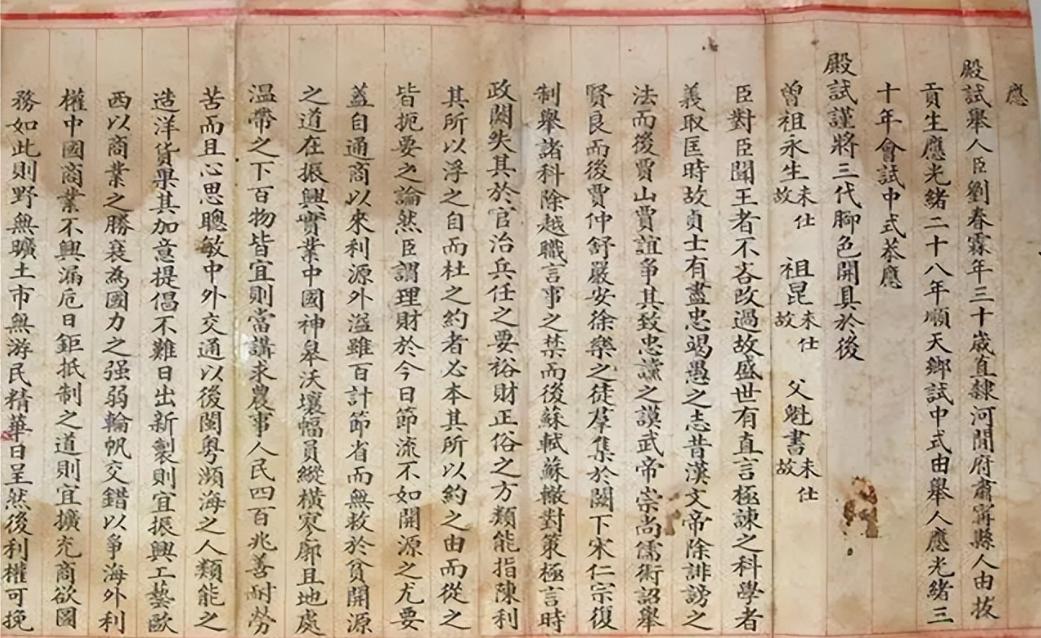 應
殿試舉人臣劉春霖年三十歲直隸河間府肅寧縣人由拔
貢生應光緒二十八年順天鄉試中式由舉人應光緒三
十年會試中式恭應
殿試謹將三代腳色開具於後
曾祖永生未仕故 祖昆未仕故 父魁書未仕故
臣對臣聞王者不吝改過故盛世有直言極諫之科學者
義取匡時故貞士有盡忠竭愚之志昔漢文帝除誹謗之
法而後賈山賈誼爭其致忠讜之謨武帝崇尚儒術詔舉
賢良而後賈仲舒嚴安徐樂之徒羣集於闕下宋仁宗復
制舉諸科除越職言事之禁而後蘇軾蘇轍對策極言時
政闕失其於官治兵任之要裕財正俗之方類能指陳利
其所以浮之自而杜之約者必本其所以約之由而從之
皆扼要之論然臣謂理財於今日節流不如開源之尤要
蓋自通商以來利源外溢雖百計節省而無救於貧開源
之道在振興實業中國神皋沃壤幅員縱橫寥廓且地處
溫帶之下百物皆宜則當講求農事人民四百兆善耐勞
苦而且心思聰敏中外交通以後閩粵瀕海之人類能之
造洋貨果其加意提倡不難日出新製則宜振興工藝歐
西以商業之勝衰為國力之强弱輪帆交錯以爭海外利
權中國商業不興漏卮日鉅抵制之道則宜擴充商欲圖
務如此則野無曠土市無游民精華日呈然後利權可挽